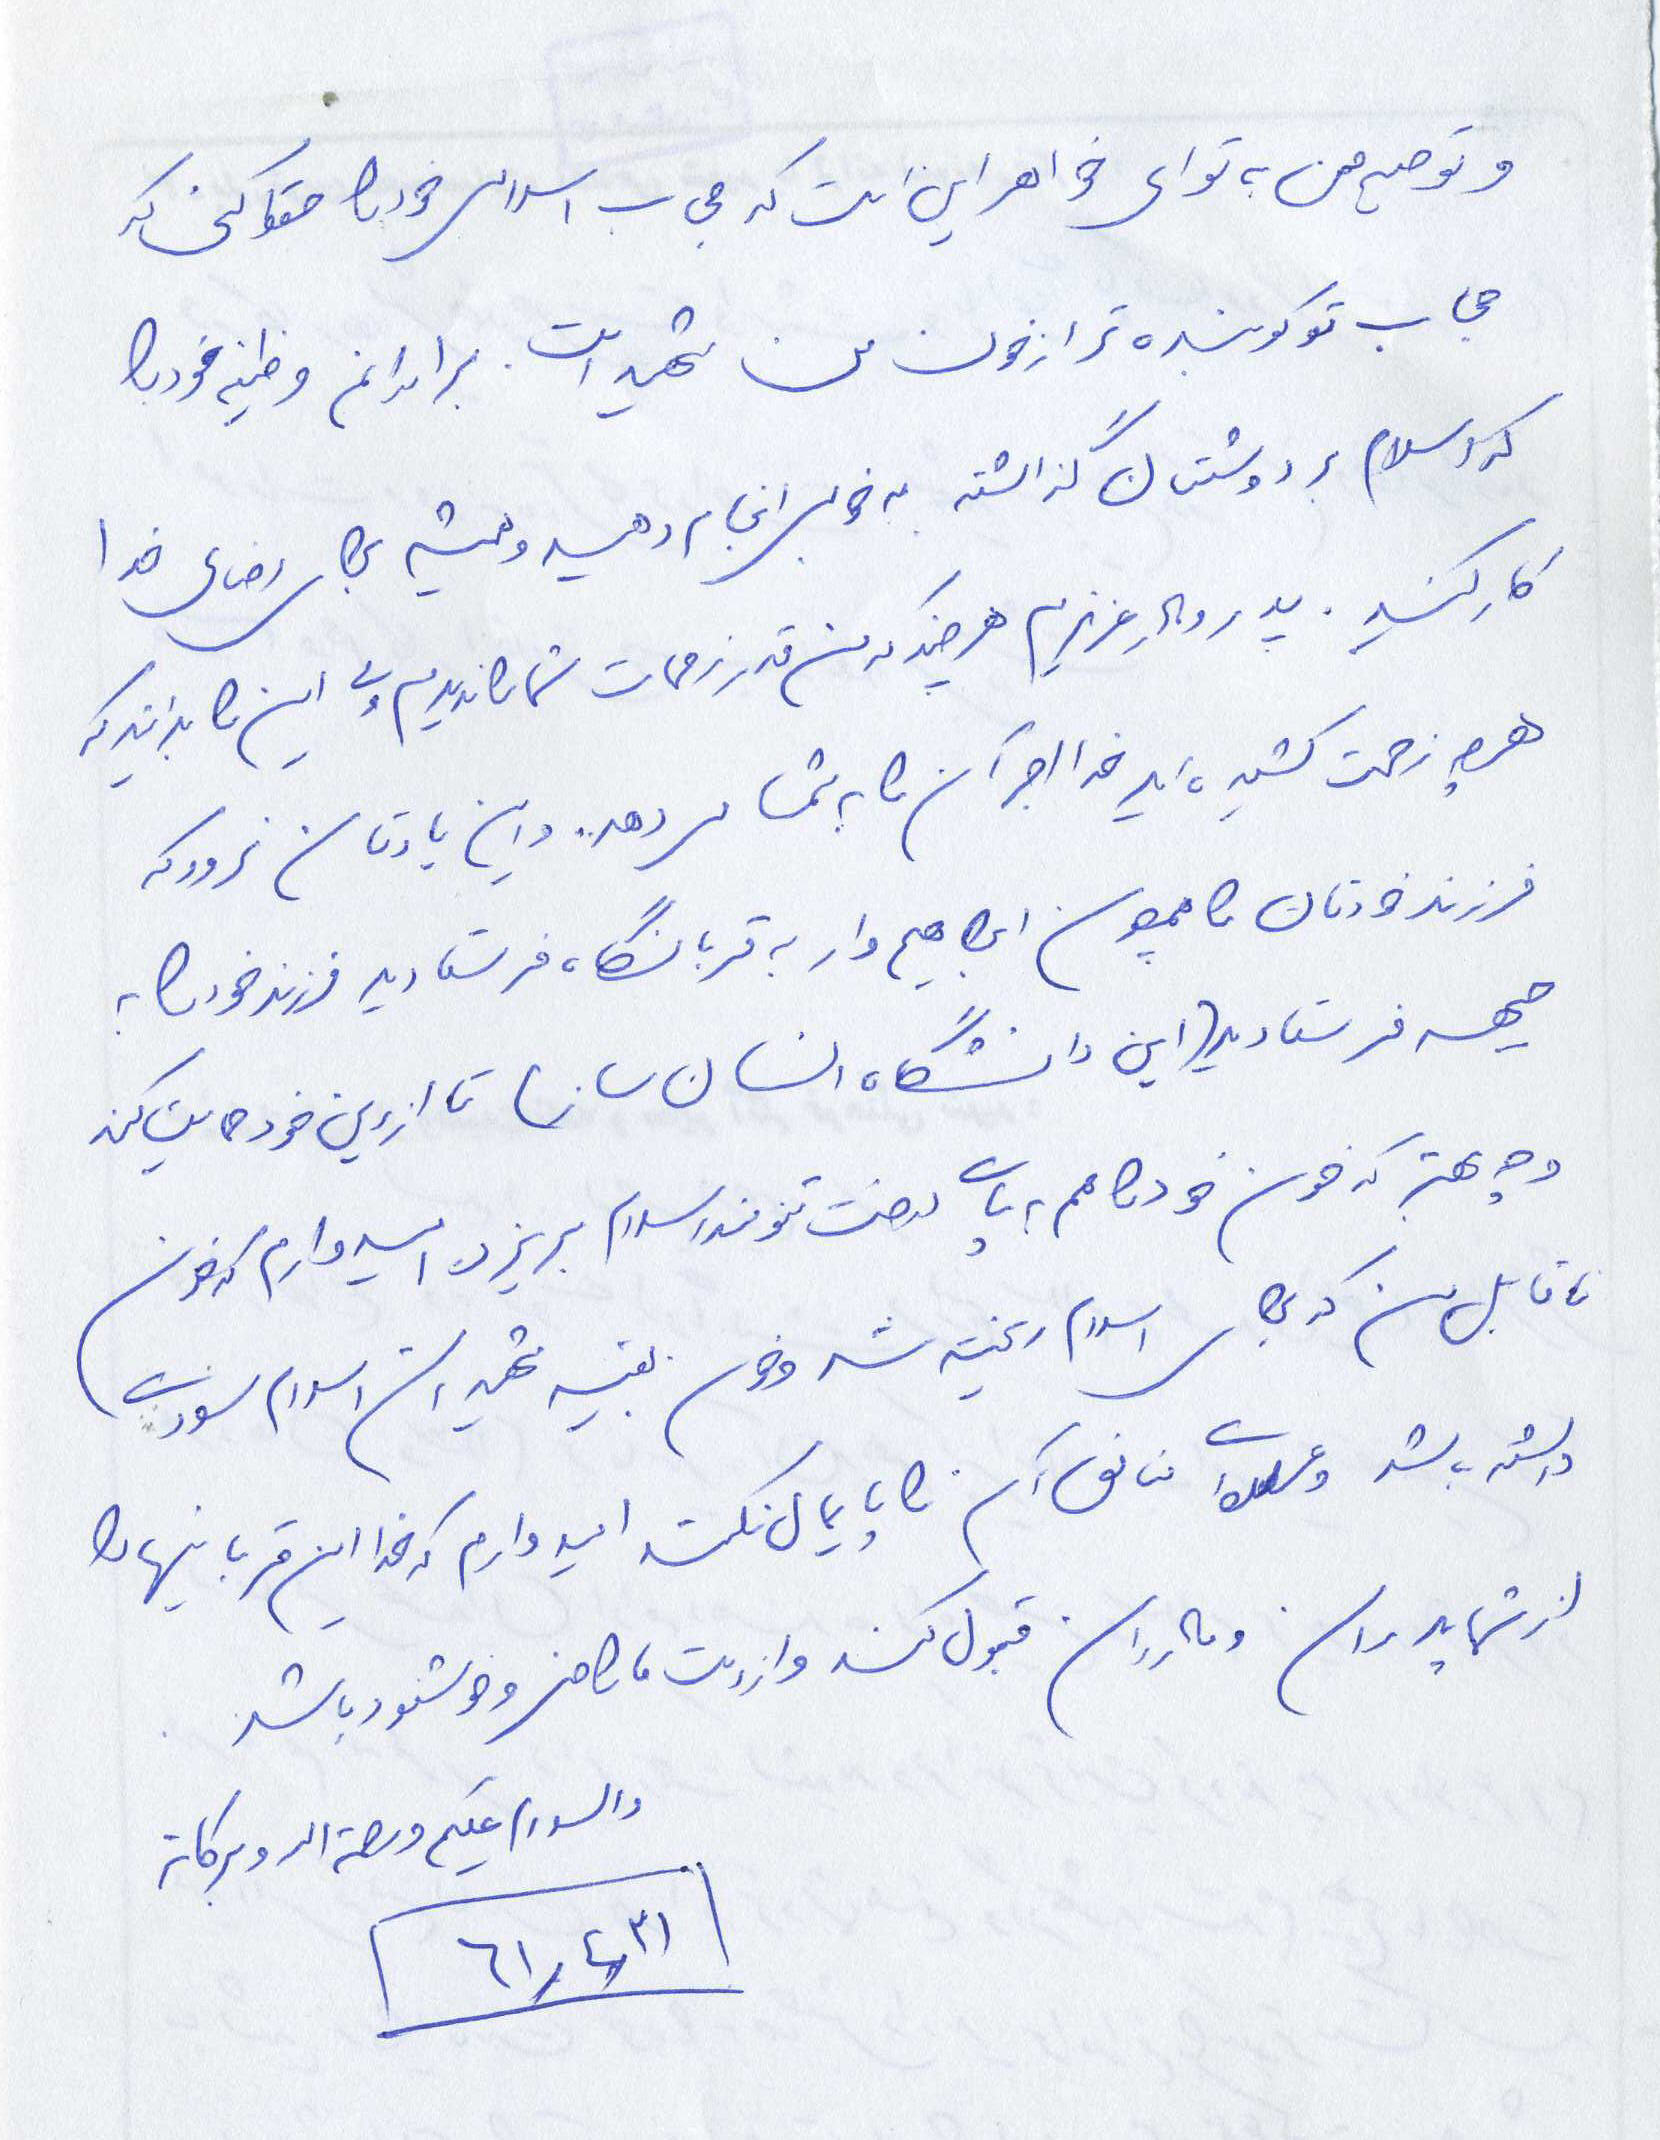 و توصیه من به تو ای خواهر این است که حجاب اسلامی خود را حفظ کنی که
حجاب تو کوبنده تر از خون من شهید است. برادرانم وظیفه خود را
که اسلام بر دوشتان گذاشته به خوبی انجام دهید و همیشه برای رضای خدا
کار کنید. پدر و مادر عزیزم هر چند که من قدر زحمات شما را ندیدم ولی این را بدانید که
هر چه زحمت کشیده اید خدا اجر آن را به شما می دهد.. و این یادتان نرود که
فرزند خودتان را همچون ابراهیم وار به قربانگاه فرستادید فرزند خود را به
جبهه فرستادید (این دانشگاه انسان سازی) تا از دین خود حمایت کند
و چه بهتر که خون خود را هم به پای درخت تنومند اسلام بریزد. امیدوارم که خون
ناقابل من که برای اسلام ریخته شد و خون بقیه شهیدان اسلام سودی
داشته باشد و عده ای منافق آن را پایمال نکنند امیدوارم که خدا این قربانیها را
از شما پدران و مادران قبول کند و از دست ما راضی و خوشنود باشد
والسلام علیکم و رحمة الله و برکاته
۶۱